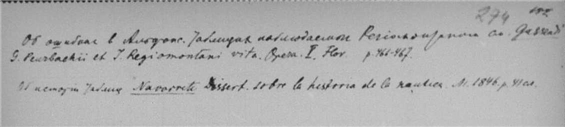 274
Об ошибках в Альфонс. Таблицах наблюдаемых Региомонтаном см. Gassendi
G. Peurbachii et J. Regiomontani vita. Opera. V. Flor. p. 466-467.
Об истории Таблиц Navarrete Dissert. sobre la historia de la nautica. M. 1846. p.